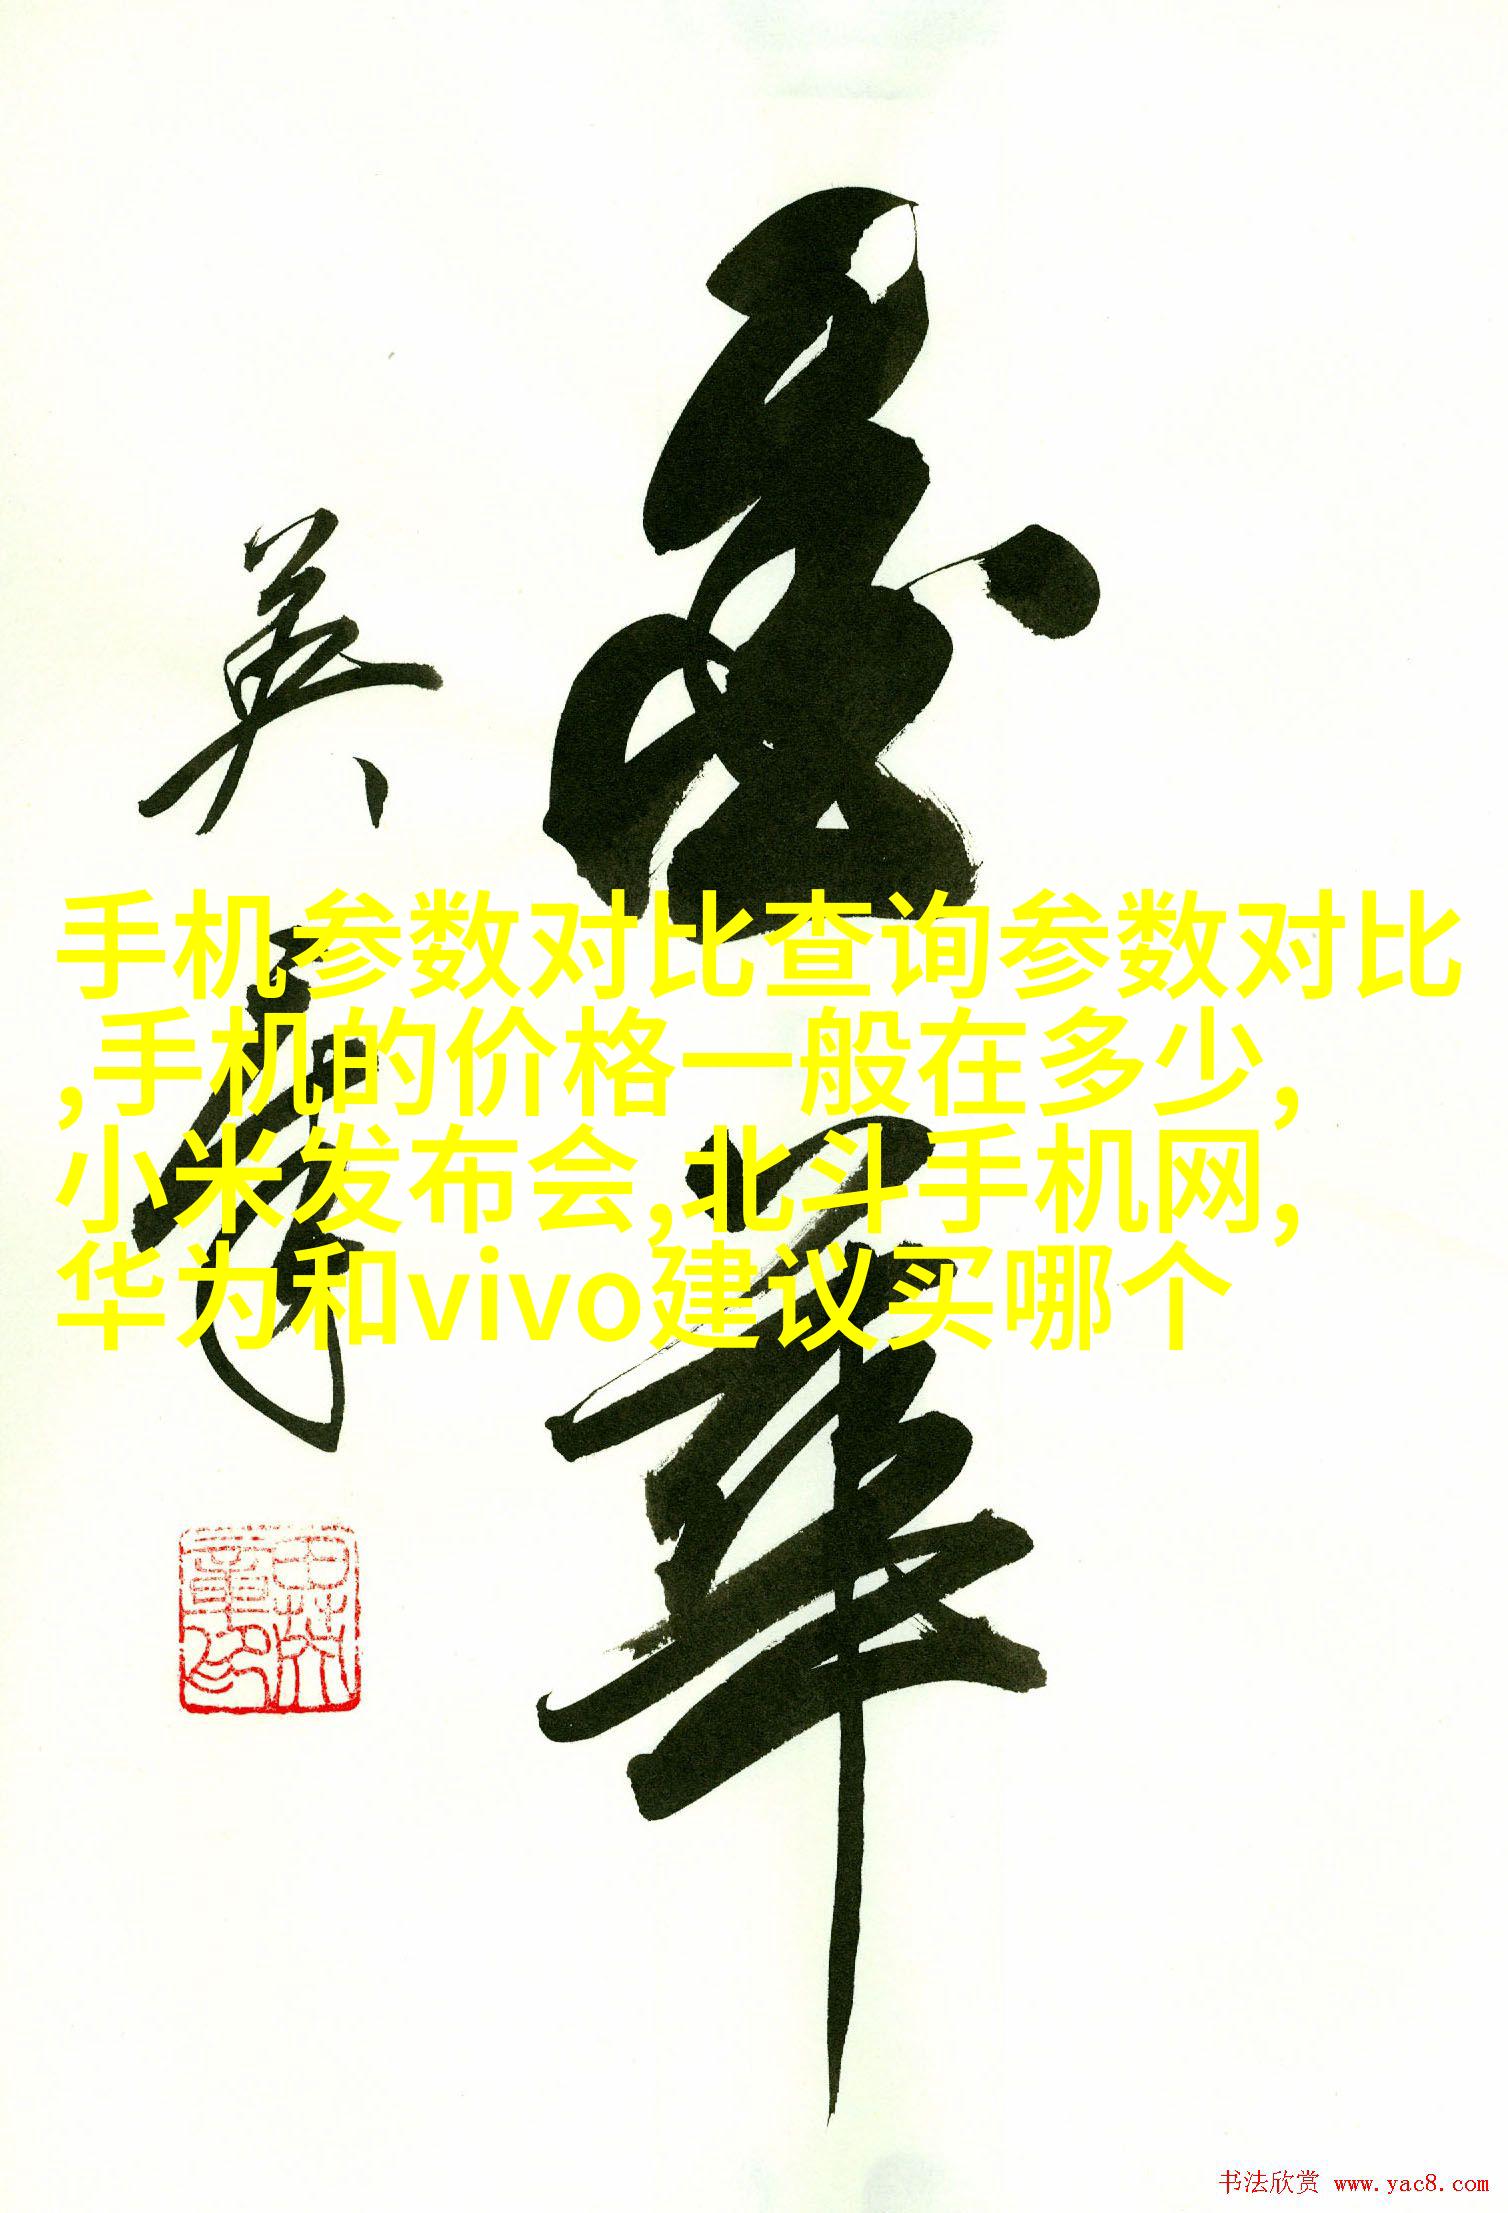 手机参数对比查询参数对比
,手机的价格一般在多少,
小米发布会,北斗手机网,
华为和vivo建议买哪个
英
华
书法欣赏 www.yac8.com